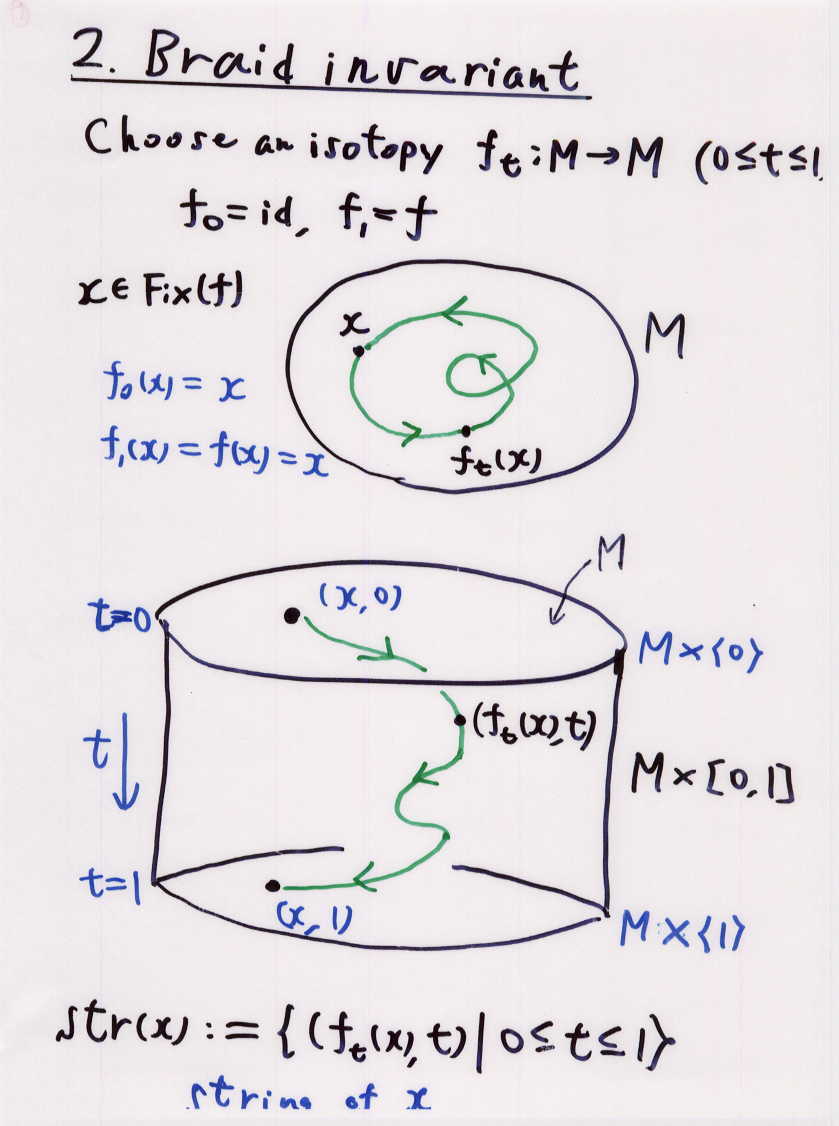 2. Braid invariant
Choose an isotopy fₜ:M→M (0≤t≤1
f₀=id, f₁=f
x∈Fix(f)
x
M
f₀(x)=x
f₁(x)=f(x)=x
fₜ(x)
M
t=0
(x,0)
M×{0}
(fₜ(x),t)
t
M×[0,1]
t=1
(x,1)
M×{1}
str(x):={(fₜ(x),t)|0≤t≤1}
string of x